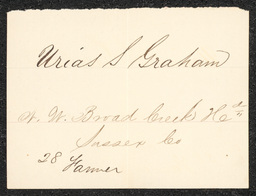 Urias S Graham
N. W. Broad Creek Hd
Sussex Co
28 Farmer